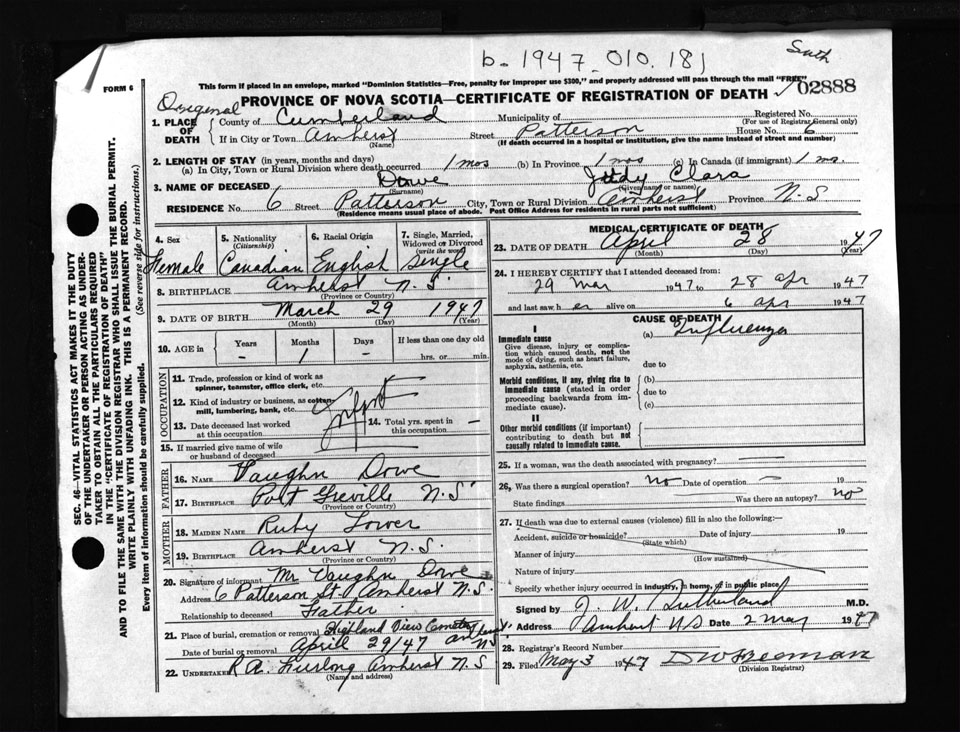 b. 1947 010. 181
Smth
FORM 6
This form if placed in an envelope, marked "Dominion Statistics—Free, penalty for improper use $300," and properly addressed will pass through the mail "FREE"
Original
PROVINCE OF NOVA SCOTIA—CERTIFICATE OF REGISTRATION OF DEATH ✓ 02888
1. PLACE OF DEATH { County of Cumberland Municipality of Registered No.
(For use of Registrar General only)
If in City or Town Amherst Street Patterson House No. 6
(Name) (If death occurred in a hospital or institution, give the name instead of street and number)
2. LENGTH OF STAY (in years, months and days)
(a) In City, Town or Rural Division where death occurred 1 mos (b) In Province 1 mos (c) In Canada (if immigrant) 1 mo.
3. NAME OF DECEASED Dowe Judy Clara
(Surname) (Given name or names)
RESIDENCE No. 6 Street Patterson City, Town or Rural Division Amherst Province N.S
(Residence means usual place of abode. Post Office Address for residents in rural parts not sufficient)
4. Sex Female
5. Nationality (Citizenship) Canadian
6. Racial Origin English
7. Single, Married, Widowed or Divorced (write the word) Single
8. BIRTHPLACE Amherst N.S
(Province or Country)
9. DATE OF BIRTH March 29 1947
(Month) (Day) (Year)
10. AGE in Years Months Days If less than one day old
– 1 – hrs. or min.
OCCUPATION
11. Trade, profession or kind of work as spinner, teamster, office clerk, etc.
12. Kind of industry or business, as cotton-mill, lumbering, bank, etc. Infant
13. Date deceased last worked at this occupation
14. Total yrs. spent in this occupation –
15. If married give name of wife or husband of deceased
FATHER
16. NAME Vaughn Dowe
17. BIRTHPLACE Port Greville N.S
(Province or Country)
MOTHER
18. MAIDEN NAME Ruby Tower
19. BIRTHPLACE Amherst N.S.
(Province or Country)
20. Signature of informant Mr Vaughn Dowe
Address 6 Patterson St. Amherst N.S.
Relationship to deceased Father
21. Place of burial, cremation or removal Highland View Cemetery Amherst NS
Date of burial or removal April 29/47
22. UNDERTAKER R.A. Furlong Amherst N.S
(Name and address)
MEDICAL CERTIFICATE OF DEATH
23. DATE OF DEATH April 28 1947
(Month) (Day) (Year)
24. I HEREBY CERTIFY that I attended deceased from:
29 Mar 1947 to 28 apr 1947
and last saw h er alive on 6 apr 1947
CAUSE OF DEATH
I
Immediate cause
Give disease, injury or complication which caused death, not the mode of dying, such as heart failure, asphyxia, asthenia, etc.
(a) Influenza
due to
Morbid conditions, if any, giving rise to immediate cause (stated in order proceeding backwards from immediate cause).
(b)
due to
(c)
II
Other morbid conditions (if important) contributing to death but not causally related to immediate cause.
25. If a woman, was the death associated with pregnancy? —
26. Was there a surgical operation? no Date of operation – 19
State findings Was there an autopsy? no
27. If death was due to external causes (violence) fill in also the following:—
Accident, suicide or homicide? Date of injury 19
(State which)
Manner of injury
(How sustained)
Nature of injury
Specify whether injury occurred in industry, in home, or in public place
Signed by J. W. Sutherland M.D.
Address Amherst N.S Date 2 May 1947
28. Registrar's Record Number
29. Filed May 3 1947 D W Beeman
(Division Registrar)
SEC. 46—VITAL STATISTICS ACT MAKES IT THE DUTY
OF THE UNDERTAKER OR PERSON ACTING AS UNDER-
TAKER TO OBTAIN ALL THE PARTICULARS REQUIRED
IN THE "CERTIFICATE OF REGISTRATION OF DEATH"
AND TO FILE THE SAME WITH THE DIVISION REGISTRAR WHO SHALL ISSUE THE BURIAL PERMIT.
WRITE PLAINLY WITH UNFADING INK. THIS IS A PERMANENT RECORD.
Every item of information should be carefully supplied. (See reverse side for instructions.)